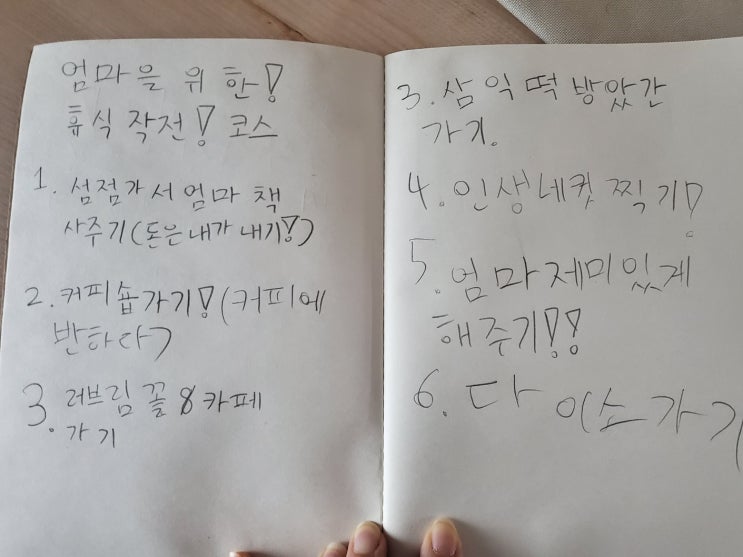 엄마을 위 한!
휴식 작전! 코스
1. 섬점가서 엄마 책
사주기(돈은 내가 내기!)
2. 커피숍가기!(커피에
반하다)
3. 러브림 꼴 & 카페
가기
3. 삼익떡 방았간
가기.
4. 인생네컷 찍기!
5. 엄마 제미있게
해주기!!
6. 다이소가기